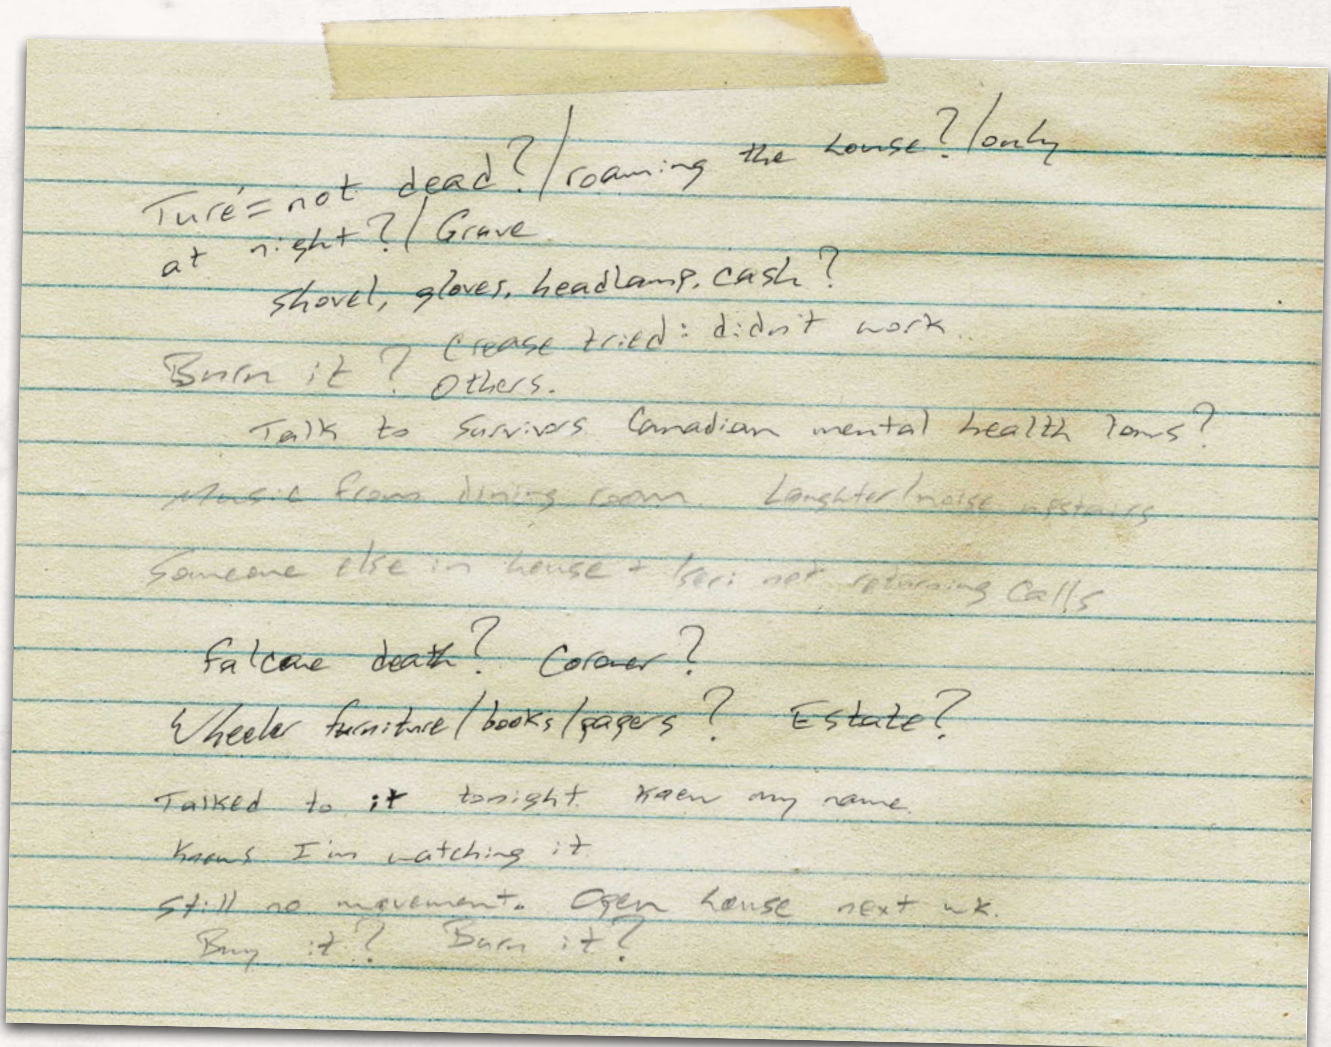 Turé = not dead? / roaming the house? / only
at night? / Grave
shovel, gloves, headlamp, cash?
Crease tried: didn't work.
Burn it? Others.
Talk to survivors Canadian mental health laws?
Music from dining room Laughter/noise upstairs
Someone else in house + not returning calls
Falcone death? Coroner?
Wheeler furniture/books/papers? Estate?
Talked to it tonight. Knew my name.
Knows I'm watching it
Still no movement. Open house next wk.
Buy it? Burn it?